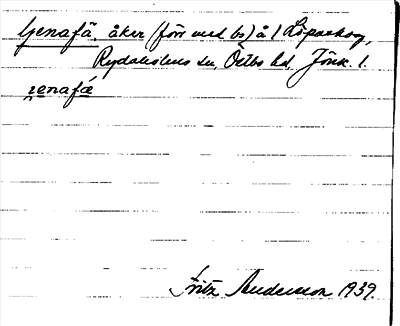 Genafä, åker (förr med bs) å 1 Löparskog,
Rydaholms sn, Östbo hd, Jönk. l.
genafǽ
Fritz Anderson 1939.